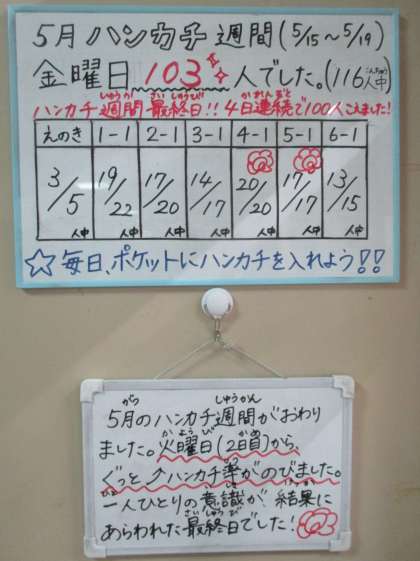 5月 ハンカチ 週間(5/15～5/19)
金曜日 103人でした。(116人中)
ハンカチ週間最終日!! 4日連続で100人こえました!
えのき 1-1 2-1 3-1 4-1 5-1 6-1
3/5人中 19/22人中 17/20人中 14/17人中 20/20人中 17/17人中 13/15人中
☆毎日、ポケットにハンカチを入れよう!!
5月のハンカチ週間がおわり
ました。火曜日(2日目)から、
ぐっと↗ハンカチ率がのびました。
一人ひとりの意識が結果に
あらわれた最終日でした!